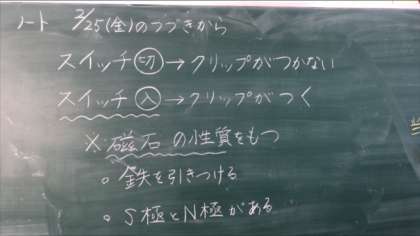 ノート 2/25(金)のつづきから
スイッチ切→クリップがつかない
スイッチ入→クリップがつく
※磁石の性質をもつ
○鉄を引きつける
○S極とN極がある